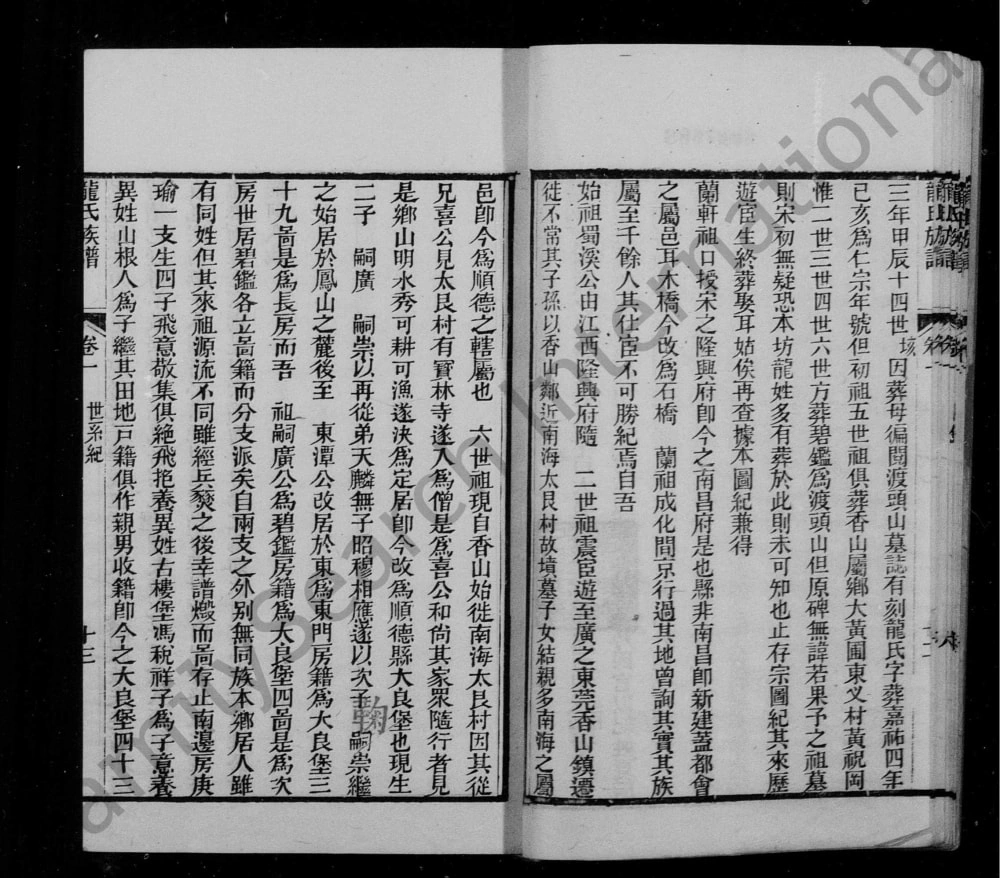 三年甲辰十四世垓因葬母徧閱渡頭山墓誌有刻龍氏字葬嘉祐四年
己亥爲仁宗年號但初祖五世祖俱葬香山屬鄉大黃圃東叉村黃祝岡
惟二世三世四世六世方葬碧鑑爲渡頭山但原碑無諱若果予之祖墓
則宋初無疑恐本坊龍姓多有葬於此則未可知也止存宗圖紀其來歷
遊臣生終葬娶耳姑俟再查據本圖紀兼得
蘭軒祖口授宋之隆興府卽今之南昌府是也縣非南昌卽新建蓋都會
之屬邑耳木橋今改爲石橋 蘭祖成化間京行過其地曾詢其實其族
屬至千餘人其仕宦不可勝紀焉自吾
始祖蜀溪公由江西隆興府隨 二世祖震臣遊至廣之東莞香山鎮遷
徙不當其子孫以香山鄰近南海太艮村故墳墓子女結親多南海之屬
邑卽今爲順德之轄屬也 六世祖現自香山始徙南海太艮村因其從
兄喜公見太艮村有寶林寺遂入爲僧是爲喜公和尚其家眾隨行者見
是鄉山明水秀可耕可漁遂決爲定居卽今改爲順德縣大良堡也現生
二子 嗣廣 嗣崇以再從弟天麟無子昭穆相應遂以次子 嗣崇繼
之始居於鳳山之麓後至 東潭公改居於東爲東門房籍爲大良堡三
十九啚是爲長房而吾 祖嗣廣公爲碧鑑房籍爲大良堡四啚是爲次
房世居碧鑑各立啚籍而分支派矣自兩支之外別無同族本鄉居人雖
有同姓但其來祖源流不同雖經兵燹之後幸譜燬而啚存止南邊房庚
瑜一支生四子飛意敬集俱絕飛抱養異姓古樓堡馮稅祥子爲子意養
異姓山根人爲子繼其田地戶籍俱作親男收籍卽今之大良堡四十三
龍氏族譜 卷一 世系紀 十三